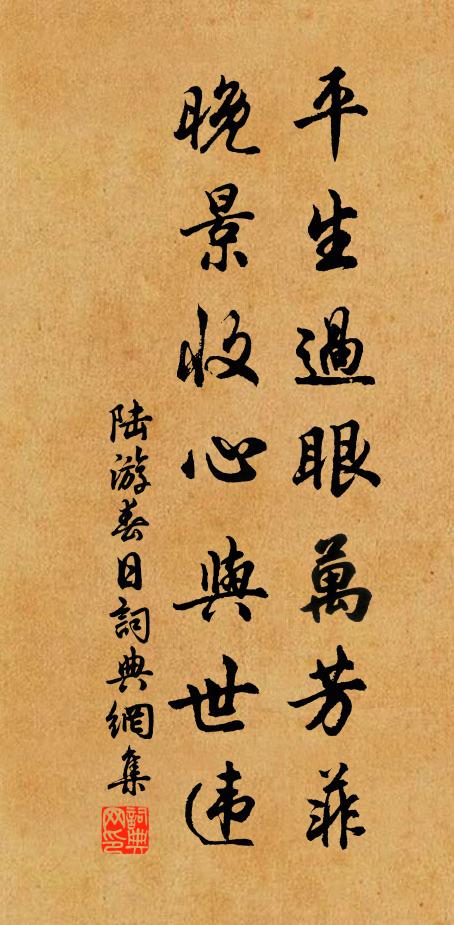 平生過眼萬芳菲
晚景收心與世違
陆游春日詞典網集
詞典网印